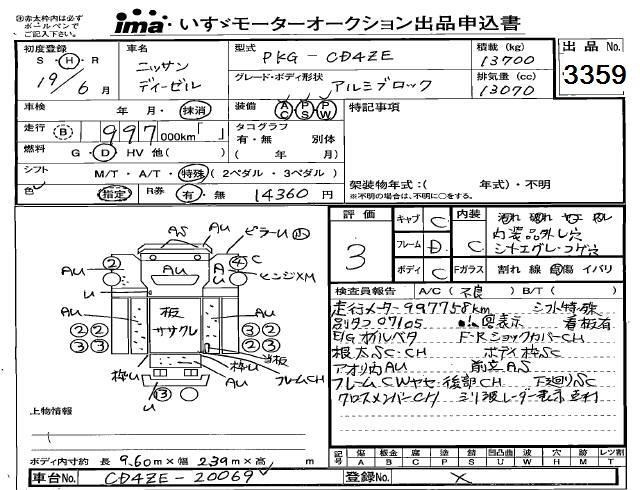 ※赤太枠内は必ず
ボールペンで
ご記入下さい。
ima いすゞモーターオークション出品申込書
初度登録
S・H・R
19/6月
車名
ニッサン
ディーゼル
型式
PKG-CD4ZE
グレード・ボディ形状
アルミブロック
積載(kg)
13700
排気量(cc)
13070
出品No.
3359
車検 年 月・抹消
装備 AC PS PW
特記事項
走行 B 997 000km「 」
タコグラフ
有・無 別体
( 年 月)
燃料 G・D・HV 他( )
シフト M/T・A/T・特殊(2ペダル・3ペダル)
架装物年式:( 年式)・不明
※不明の場合は、不明に○をする。
色 指定 R券 有・無 14360 円
評価
3
キャブ C
フレーム D
ボディ C
内装
C
内装品外し穴
Fガラス 割れ 線 傷 イバリ
検査員報告 A/C(不良) B/T( )
走行メーター997758km シフト特殊
別タコ07105 回表示 看板有
E/Gオイルベタ F・RショックカバーCH
根太SC・CH ボディ枠SC
アオリ内AU 前立AS
フレームCWヤセ・後部CH 下廻りSC
クロスメンバーCH
AS
AU
ピラーU 小
② ④ C
AU AU A
U
ヒンジXM
U
板
ササクレ
AU AU
②② ③②
③③ ③③
枠U
U
⑬
AU
枠U
当板
フレームCH
上物情報
ボディ内寸約 長 9.60m×幅 2.39m×高 m
車台No. CD4ZE-20069
記号 傷 A 板金 B 腐 C 塗 P 錆 S 凹凸曲 U 波 W 穴 H 跡 M レンズ割 T
登録No. ×